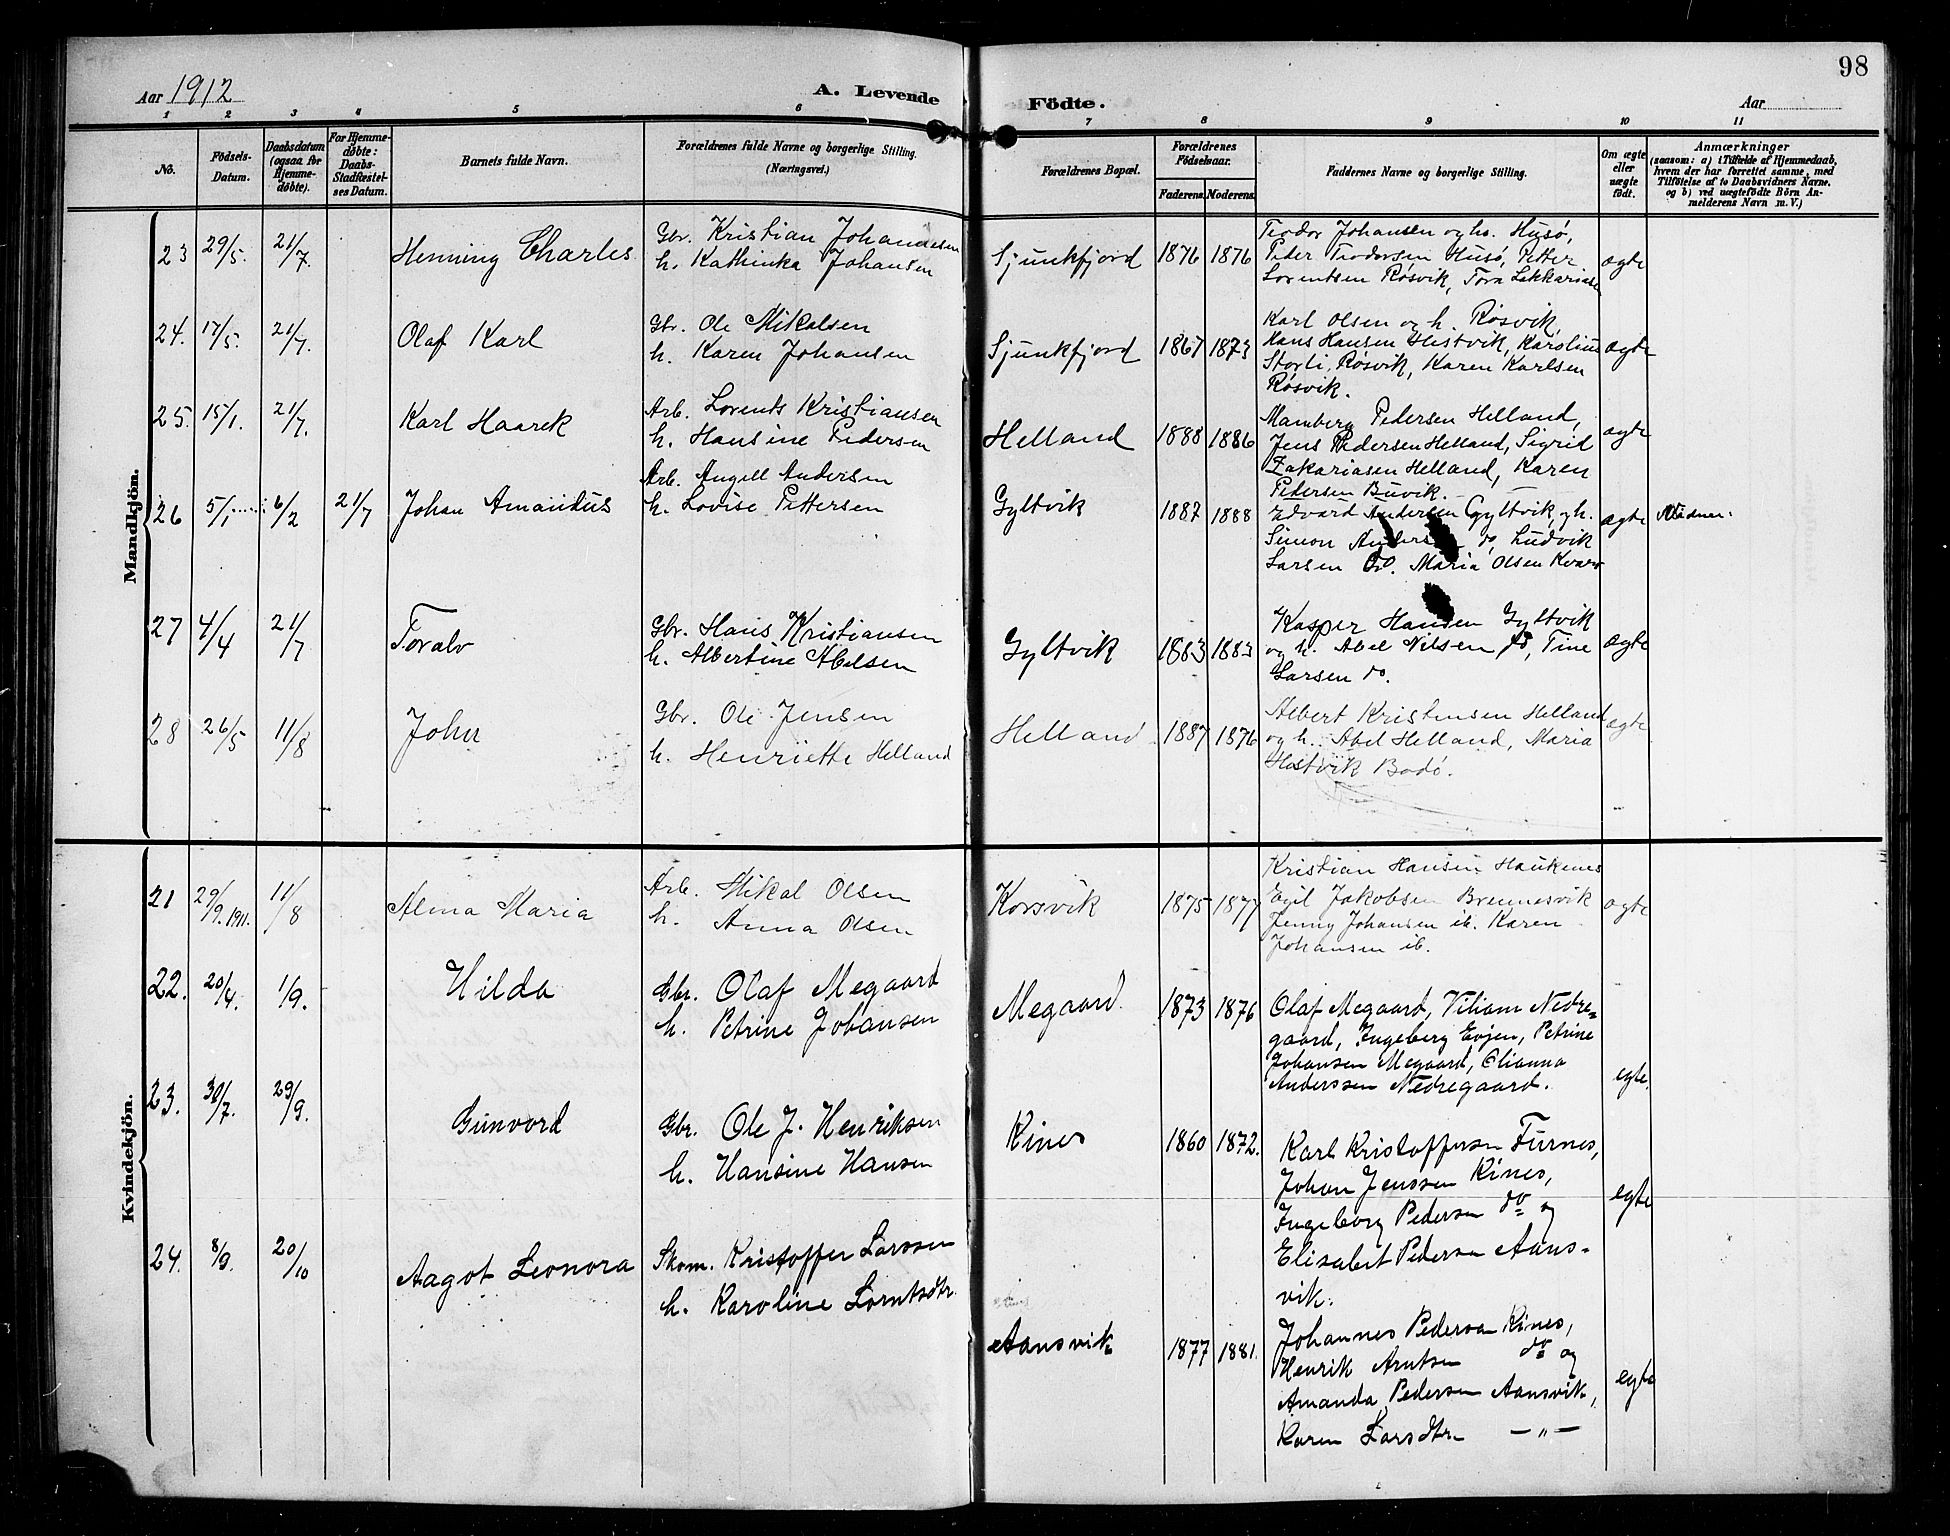 98
Aar 1912 A. Levende Födte. Aar
1 2 3 4 5 6 7 8 9 10 11
No. Födsels-Datum. Daabsdatum (ogsaa for Hjemme-døbte). For Hjemme-døbte: Daabs-Stadfæstel-ses Datum. Barnets fulde Navn. Forældrenes fulde Navne og borgerlige Stilling. (Næringsvei.) Forældrenes Bopæl. Forældrenes Fødselsaar. Faderens. Moderens. Faddernes Navne og borgerlige Stilling. Om ægte eller uægte født. Anmærkninger (saasom: a) i Tilfælde af Hjemmedaab, hvem der har forrettet samme, med Tilföielse af to Daabsvidners Navne. og b) ved uægtefödte Börn An-melderens Navn m. V.)
Mandkjön.
23 29/5. 21/7. Henning Charles Gbr. Kristian Johannesen Sjunkfjord 1876 1876 Teodor Johansen og h. Husø, ægte
h. Kathinka Johansen Peder Teodorsen Husø, Petter
Lorentsen Røsvik, Tora
24. 17/5. 21/7. Olaf Karl Gbr. Ole Mikalsen Sjunkfjord 1867 1873 Karl Olsen og h. Røsvik, ægte
h. Karen Johansen Hans Hansen Hestvik,
Storli, Røsvik, Karen Karlsen
Røsvik.
25. 15/1. 21/7. Karl Haarek Arb. Lorents Kristiansen Helland 1888 1886 Pedersen Helland, ægte
h. Hansine Pedersen Jens Pedersen Helland, Sigrid
Zakariasen Helland, Karen
Pedersen Buvik.
26 5/1 6/2 21/7 Johan Amandus Arb. Angell Andersen Gyltvik 1887 1888 Edvard Andersen Gyltvik, og h. ægte
h. Lovise Pettersen Simon Andersen do, Ludvik
Larsen do. Maria Olsen
27 4/4 21/7 Toralv Gbr. Hans Kristiansen Gyltvik 1883 1883 Kasper Hansen Gyltvik ægte
h. Albertine Abelsen og h. Abel Nilsen do, Tine
Larsen do.
28 26/5 11/8 John Gbr. Ole Jensen Helland 1887 1876 Albert Kristensen Helland ægte
h. Henriette Helland og h. Abel Helland, Maria
Hestvik Bodø.
Kvindekjön.
21 29/9. 1911. 11/8 Alma Maria Arb. Mikal Olsen Korsvik 1875 1877 Kristian Hansen Haukenes ægte
h. Anna Olsen Egil Jakobsen Brennesvik
Jenny Johansen ib. Karen
Johansen ib.
22. 20/4. 1/9. Hilda Gbr. Olaf Megaard Megaard. 1873 1876 Olaf Megaard, Viliam Nedre-
h. Petrine Johansen gaard, Ingeberg Evjen, Petrine
Johansen Megaard, Elianna
Anderssen Nedregaard. egte.
23. 30/7. 29/9. Gunvord Gbr. Ole J. Henriksen Kines 1860 1872. Karl Kristoffersen Furnes,
h. Hansine Hansen Johan Jenssen Kines,
Ingeborg Pedersen do og egte
Elisabet Pedersen Aans-
vik.
24. 8/9. 20/10 Aagot Leonora Skom. Kristoffer Larssen Aansvik 1877 1881. Johannes Pedersen Kines,
h. Karoline Lorntsdtr. Henrik Arntsen do og
Amanda Pedersen Aansvik, egte
Karen Larsdtr —〃—